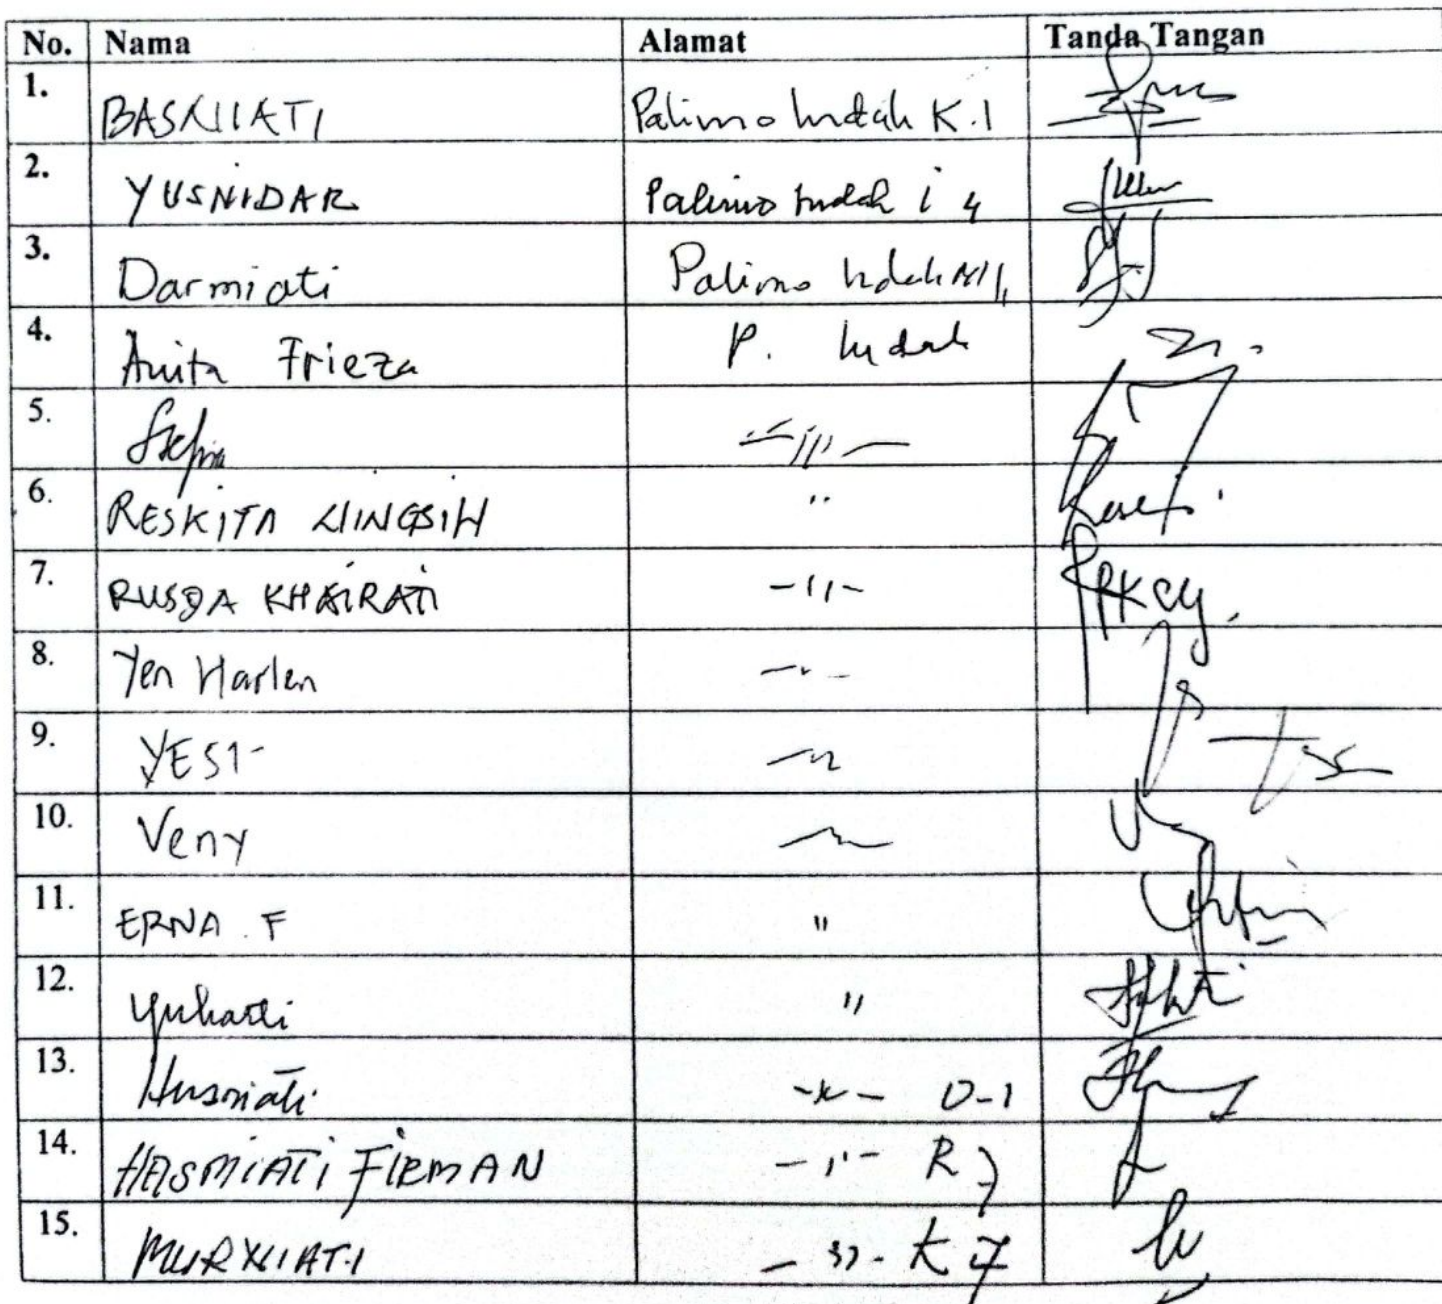 No. Nama Alamat Tanda Tangan
1. BASNIATI Palimo Indah K.1
2. YUSNIDAR Palimo Indah i 4
3. Darmiati Palimo Indah
4. Anita Frieza P. Indah
5. -//-
6. RESKITA NINGSIH "
7. RUSDA KHAIRATI -"-
8. Yen Harlen -"-
9. YESI -"-
10. Veny -"-
11. ERNA . F "
12. Yuharti "
13. Husniati -"- D-1
14. HASMIATI FIRMAN -"- R 7
15. MURNIATI -"- K 7